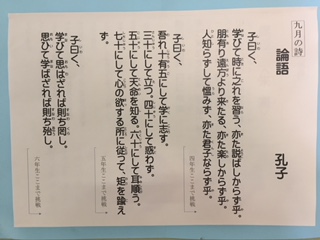 九月の詩
論語
孔子
子曰く、
学びて時に之れを習う。亦た説ばしからず乎。
朋有り遠方より来たる。亦た楽しからず乎。
人知らずして慍みず、亦た君子ならず乎。
四年生ここまで挑戦
子曰く、
吾れ十有五にして学に志す。
三十にして立つ。四十にして惑わず。
五十にして天命を知る。六十にして耳順う。
七十にして心の欲する所に従って、矩を踰え
ず。
五年生ここまで挑戦
子曰く、
学びて思わざれば則ち罔し。
思いて学ばざれば則ち殆し。
六年生ここまで挑戦